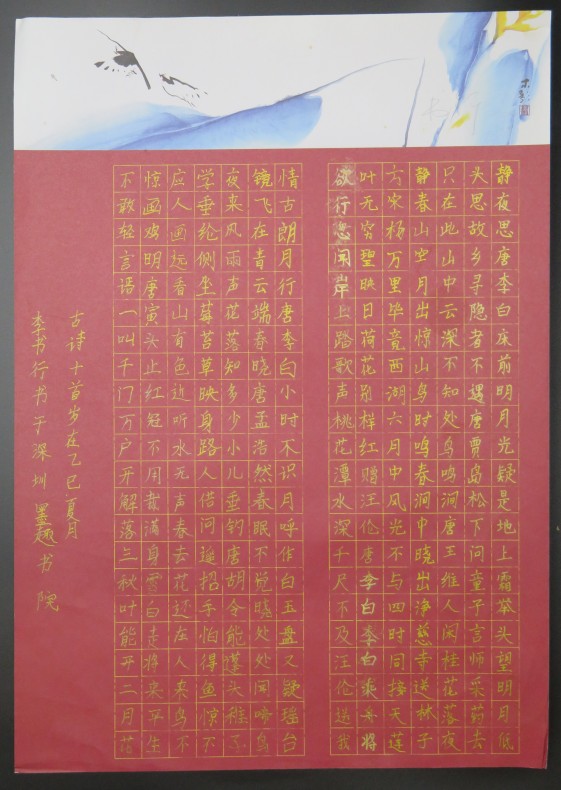 静夜思唐李白床前明月光疑是地上霜举头望明月低
头思故乡寻隐者不遇唐贾岛松下问童子言师采药去
只在此山中云深不知处鸟鸣涧唐王维人闲桂花落夜
静春山空月出惊山鸟时鸣春涧中晓出净慈寺送林子
方宋杨万里毕竟西湖六月中风光不与四时同接天莲
叶无穷碧映日荷花别样红赠汪伦唐李白李白乘舟将
欲行忽闻岸上踏歌声桃花潭水深千尺不及汪伦送我
情古朗月行唐李白小时不识月呼作白玉盘又疑瑶台
镜飞在青云端春晓唐孟浩然春眠不觉晓处处闻啼鸟
夜来风雨声花落知多少小儿垂钓唐胡令能蓬头稚子
学垂纶侧坐莓苔草映身路人借问遥招手怕得鱼惊不
应人画远看山有色近听水无声春去花还在人来鸟不
惊画鸡明唐寅头上红冠不用裁满身雪白走将来平生
不敢轻言语一叫千门万户开解落三秋叶能开二月花
古诗十首岁在乙巳夏月
李书行书于深圳墨趣书院